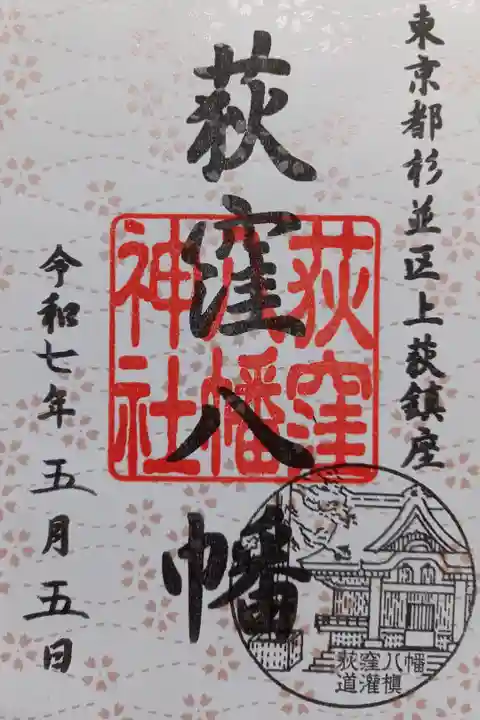 東京都杉並区上荻鎮座
荻窪八幡
荻窪
八幡
神社
令和七年五月五日
荻窪八幡
道灌槇